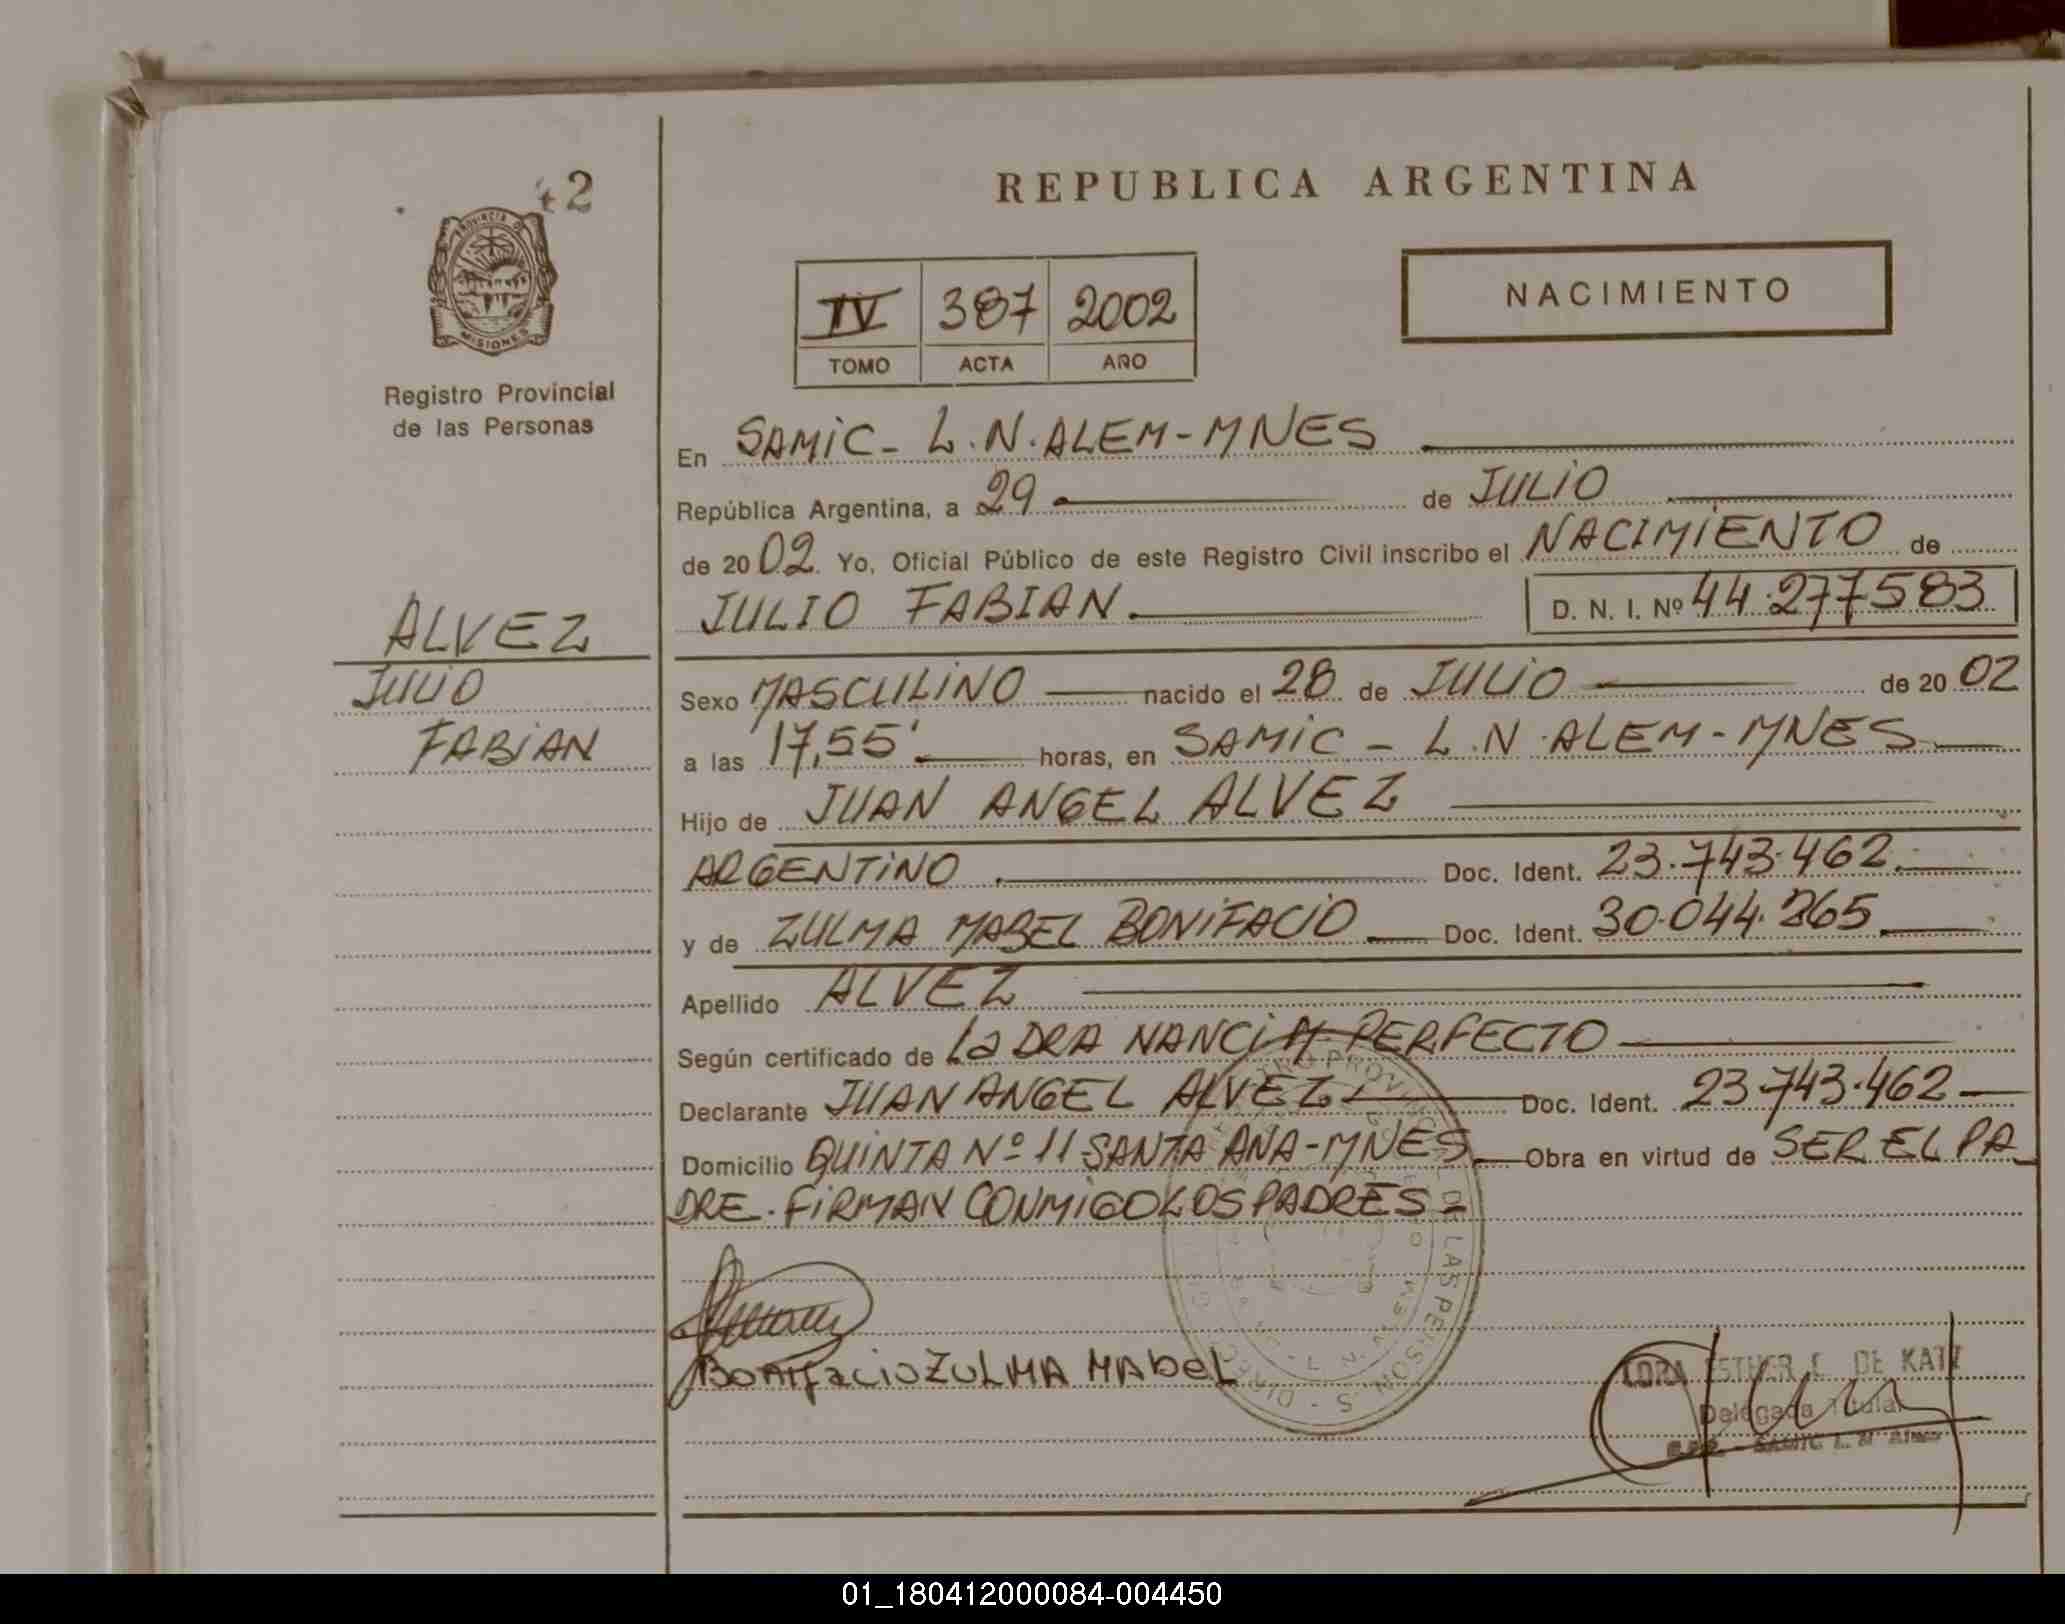 42
PROVINCIA D
MISIONES
Registro Provincial
de las Personas
ALVEZ
JULIO
FABIAN
REPUBLICA ARGENTINA
IV 387 2002
TOMO ACTA AÑO
NACIMIENTO
En SAMIC - L.N. ALEM - MNES
República Argentina, a 29 de JULIO
de 2002. Yo, Oficial Público de este Registro Civil inscribo el NACIMIENTO de
JULIO FABIAN. D. N. I. Nº 44.277583
Sexo MASCULINO nacido el 28 de JULIO de 2002
a las 17,55' horas, en SAMIC - L.N. ALEM - MNES
Hijo de JUAN ANGEL ALVEZ
ARGENTINO Doc. Ident. 23.743.462
y de ZULMA MABEL BONIFACIO Doc. Ident. 30.044.265
Apellido ALVEZ
Según certificado de La DRA NANCI M PERFECTO
Declarante JUAN ANGEL ALVEZ Doc. Ident. 23.743.462
Domicilio QUINTA Nº 11 - SANTA ANA - MNES Obra en virtud de SER EL PA
DRE. FIRMAN CONMIGO LOS PADRES
PROVINCIAL DE LAS PERSONAS
BONIFacio ZULMA MAbeL
ESTHER L. DE KATZ
Delegada Titular
SAMIC L. N Alem
01_180412000084-004450